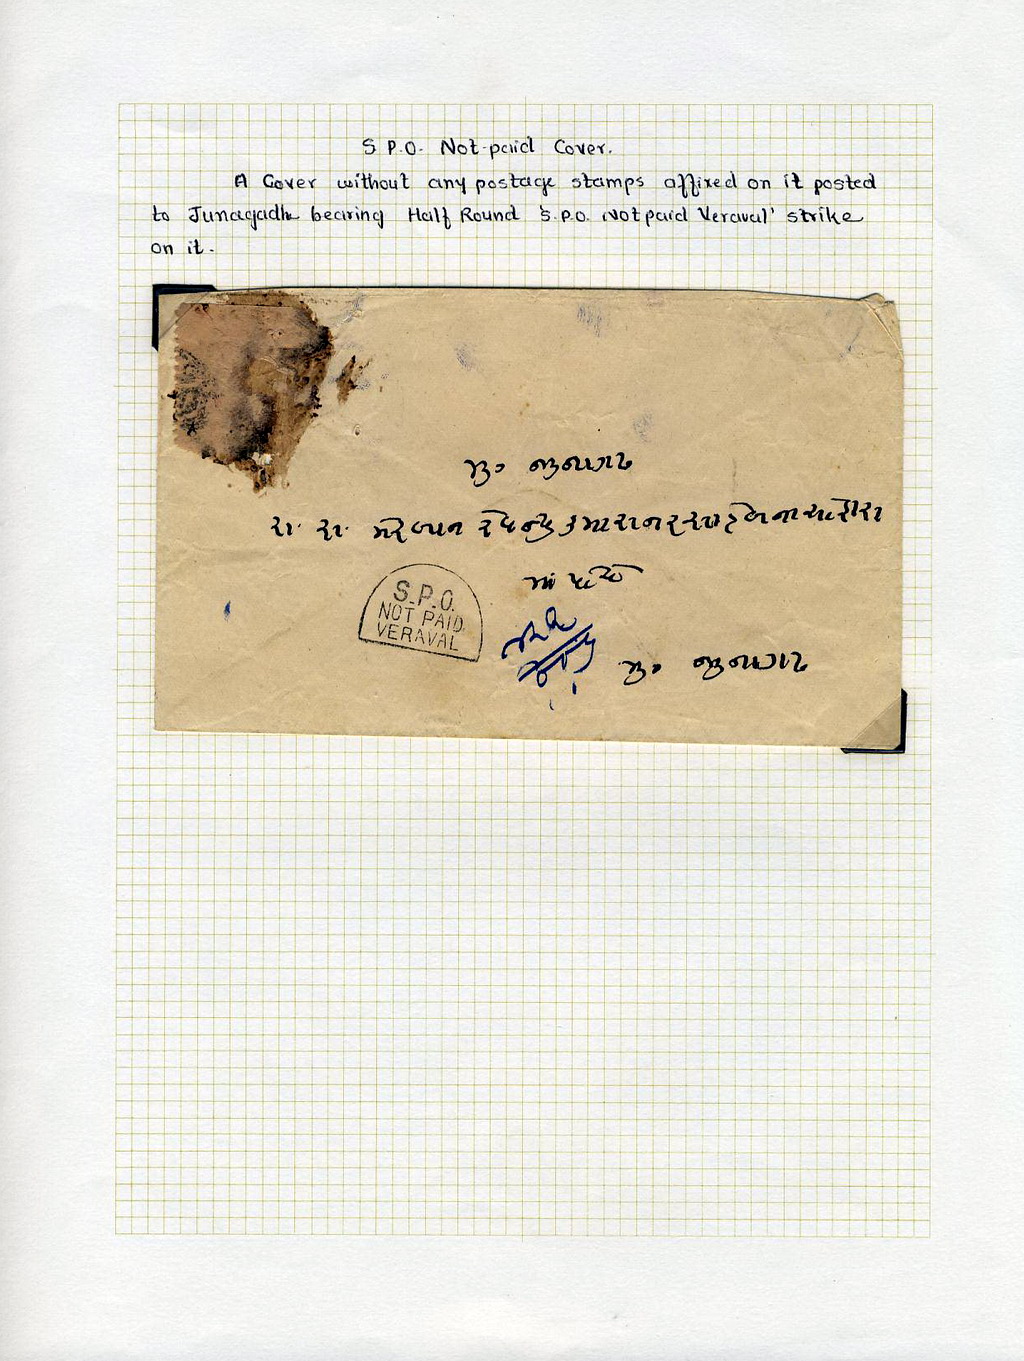 S.P.O. Not-paid Cover.
A Cover without any postage stamps affixed on it posted
to Junagadh bearing Half Round 'S.P.O. Not paid Veraval' strike
on it.
મુ૦ જુનાગઢ
રા. રા. મેરબાન
S.P.O.
NOT PAID
VERAVAL
મુ૦ જુનાગઢ